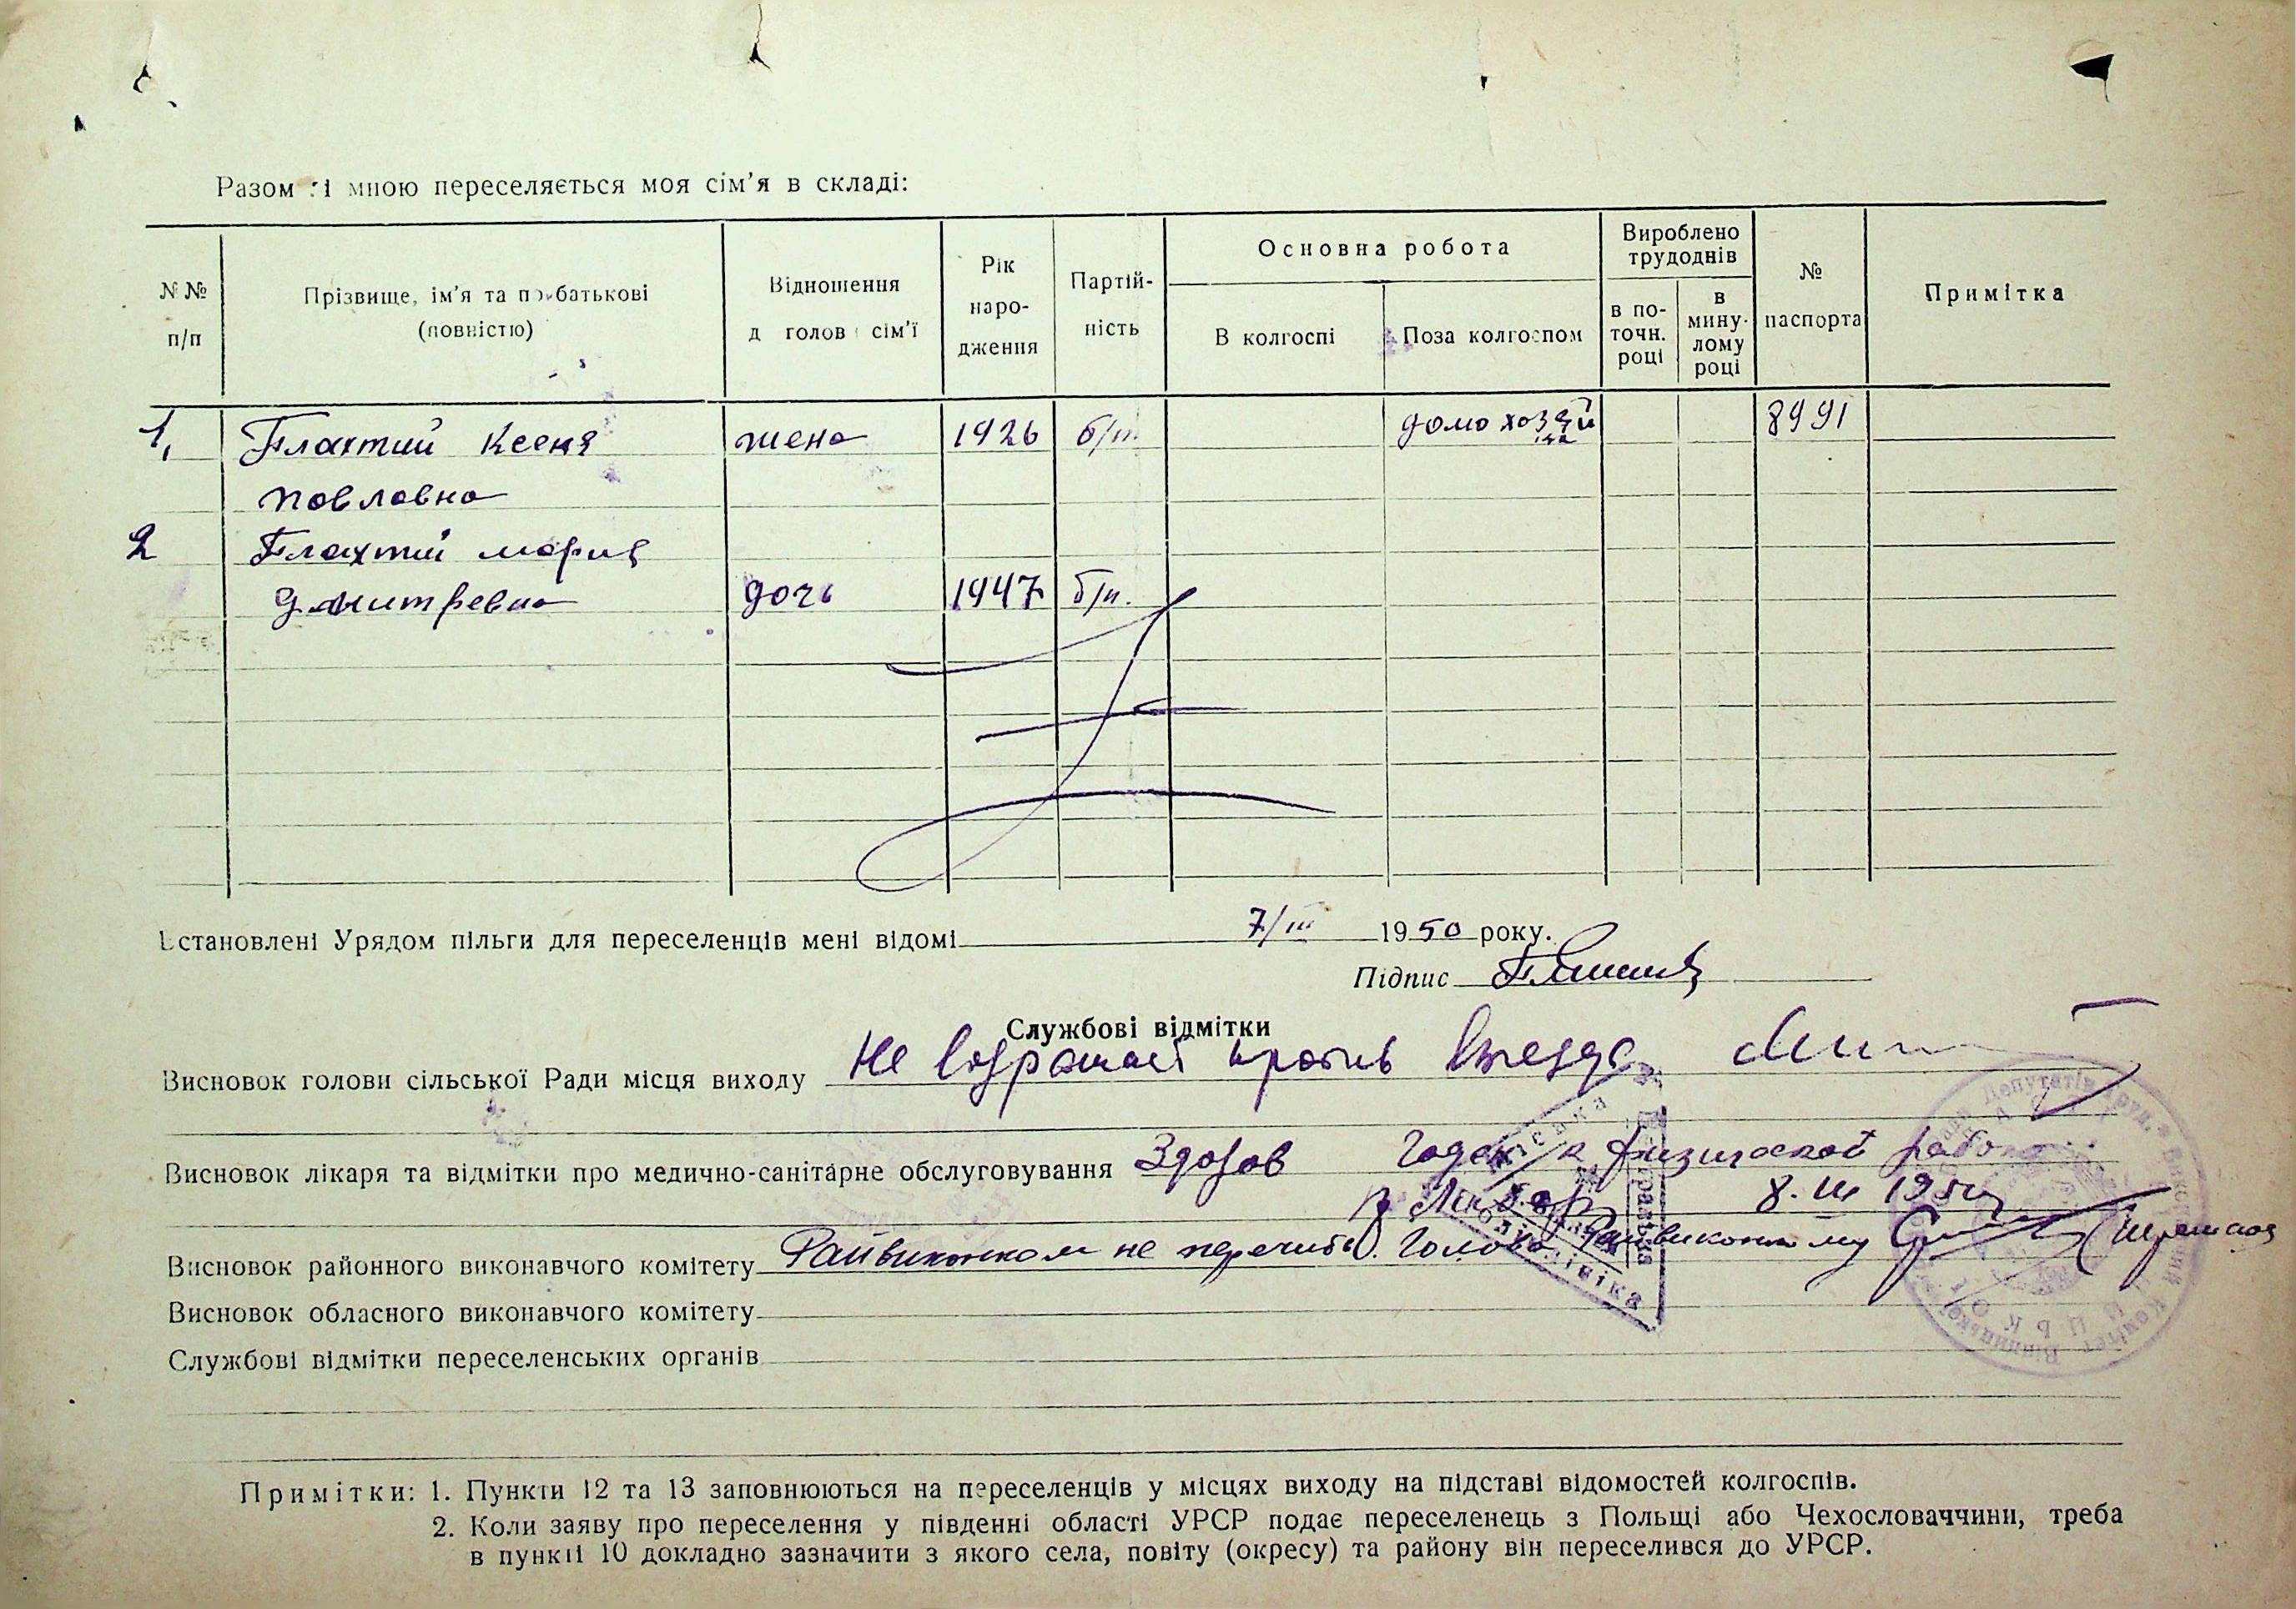 Разом зі мною переселяється моя сім'я в складі:
№№ п/п
Прізвище, ім'я та по-батькові (повністю)
Відношення д голов сім'ї
Рік народження
Партійність
Основна робота
В колгоспі
Поза колгоспом
Вироблено трудоднів
в поточн. році
в минулому році
№ паспорта
Примітка
1, Плахтий Ксеня жена 1926 б/п домохозяйка 8991
Повловна
2 Плахтий Мария
Дмитревна дочь 1947 б/п.
Встановлені Урядом пільги для переселенців мені відомі 7/III 1950 року.
Підпис
Службові відмітки
Висновок голови сільської Ради місця виходу Не возражает против выезда
Висновок лікаря та відмітки про медично-санітарне обслуговування Здоров Годен к физической работе
8. III 195
Висновок районного виконавчого комітету Райвиконком не перечить. Голова Райвиконкому
Висновок обласного виконавчого комітету
Службові відмітки переселенських органів
Примітки: 1. Пункти 12 та 13 заповнюються на переселенців у місцях виходу на підставі відомостей колгоспів.
2. Коли заяву про переселення у південні області УРСР подає переселенець з Польщі або Чехословаччини, треба
в пункті 10 докладно зазначити з якого села, повіту (окресу) та району він переселився до УРСР.